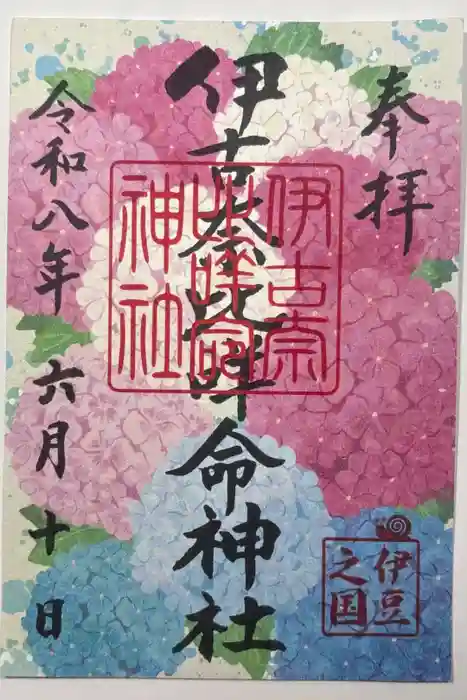 奉拝
伊古奈比咩命神社
令和八年六月十日
伊古奈
比咩命
神社
伊豆
之国